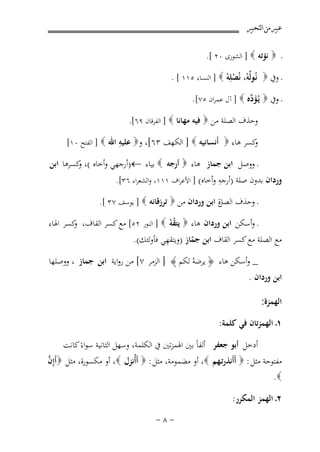 عبير من التحبير
. ﴿ نؤته ﴾ [ الشورى ٢٠ ].
. وفي ﴿ نُوَلِّهْ، نُصْلِهْ ﴾ [ النساء ١١٥ ] .
. وفي ﴿ يُؤَدِّه ﴾ [ آل عمران ٧٥].
وحذف الصلة من ﴿ فيه مهانا ﴾ [ الفرقان ٦٩].
وكسر هاء ﴿ أنسانيه ﴾ [ الكهف ٦٣]، و﴿ عليهِ الله ﴾ [ الفتح ١٠]
. ووصل ابن جماز هاء ﴿ أرجه ﴾ بياء ←(أرجهي وأخاه )، وكسرها ابن
وردان بدون صلة (أرجهِ وأخاه) [الأعراف ١١١، والشعراء ٣٦].
. وحذف الصلة ابن وردان من ﴿ ترزقانه ﴾ [ يوسف ٣٧ ].
. وأسكن ابن وردان هاء ﴿ يتقْهْ ﴾ [ النور ٥٢] مع كسر القاف، وكسر الهاء
مع الصلة مع كسر القاف ابن جمّاز (ويتقهي فأولئك).
_ وأسكن هاء ﴿ يرضهْ لكم ﴾ [ الزمر ٧] من رواية ابن جماز ، ووصلها
ابن وردان .
الهمزة:
١. الهمزتان في كلمة:
أدخل أبو جعفر ألفاً بين الهمزتين في الكلمة، وسهل الثانية سواءً كانت
مفتوحة مثل: ﴿ ءَأَنذرتهم ﴾، أو مضمومة، مثل: ﴿ أَأُنزل ﴾، أو مكسورة، مثل ﴿أَإِنَّ
﴾.
٢. الهمز المكرر:
- ٨ -